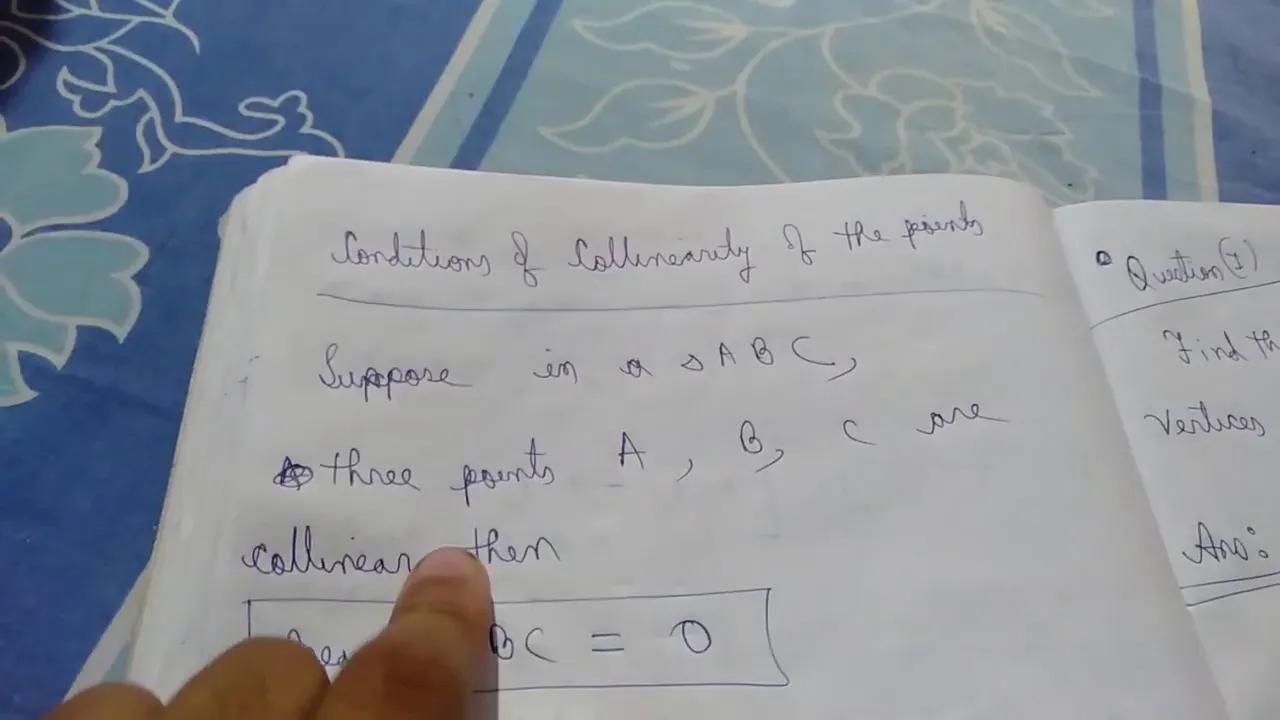 Conditions of Collinearity of the points
Suppose in a △ABC,
three points A, B, C are
collinear then
BC = 0
Question(I)
Find th
Vertices
Ans: